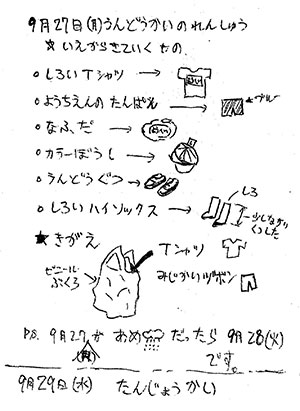 9月27日(月)うんどうかいのれんしゅう
★いえからきていくもの
○しろいTシャツ→
○ようちえんのたんぱん→ ★ブルー
○なふだ→
○カラーぼうし→
○うんどうぐつ→
○しろいハイソックス→ しろ
少しながい
くつした
★きがえ
Tシャツ
ビニール
ぶくろ
みじかいズボン
P.S. 9月27が おめ だったら 9月28(火)
(月)
です。
9月29日(水) たんじょうかい